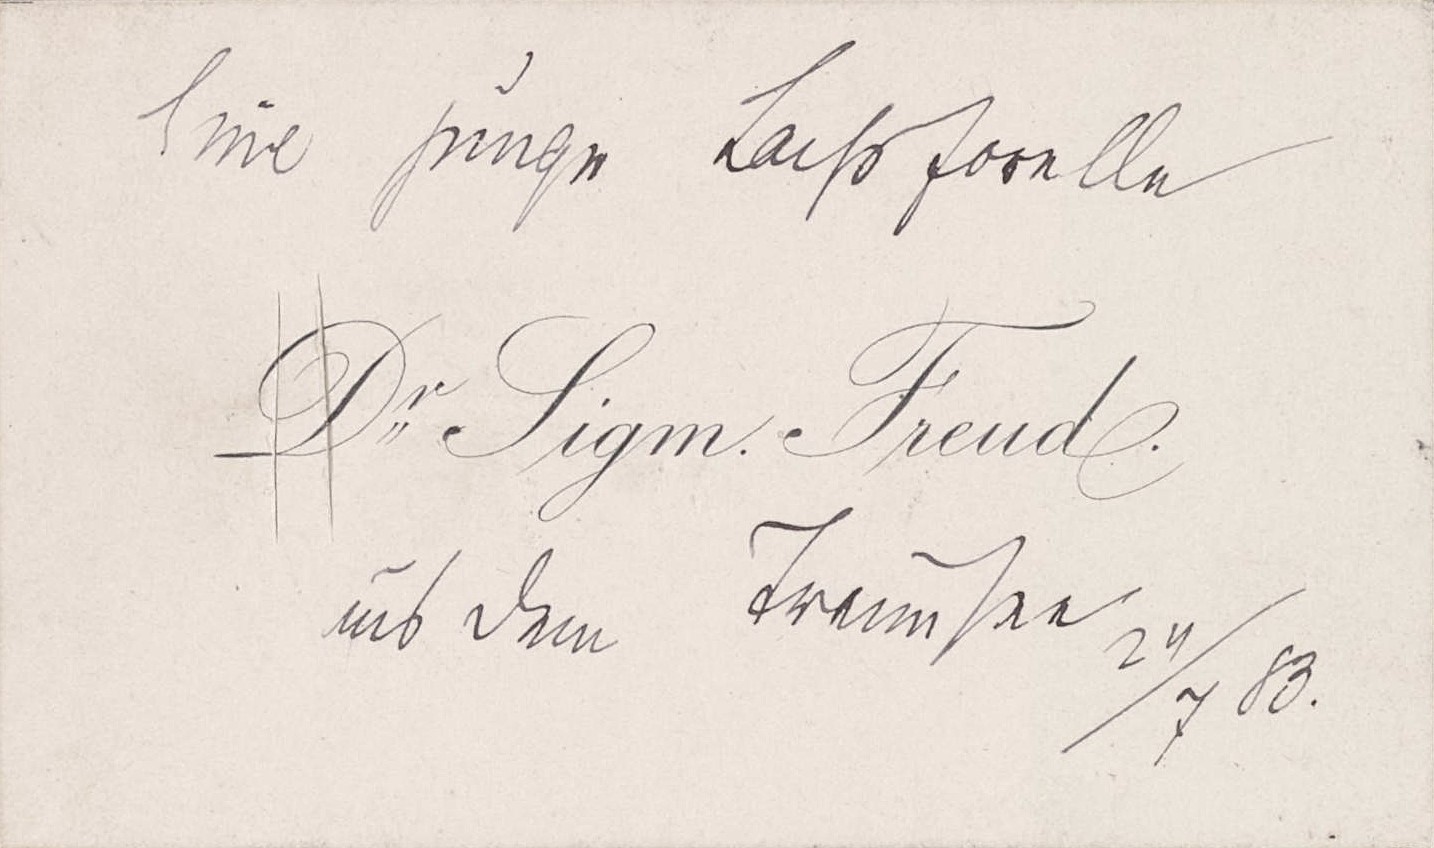 Eine junge Lachsforelle
Dr. Sigm. Freud.
aus dem Traunsee 24/7 83.